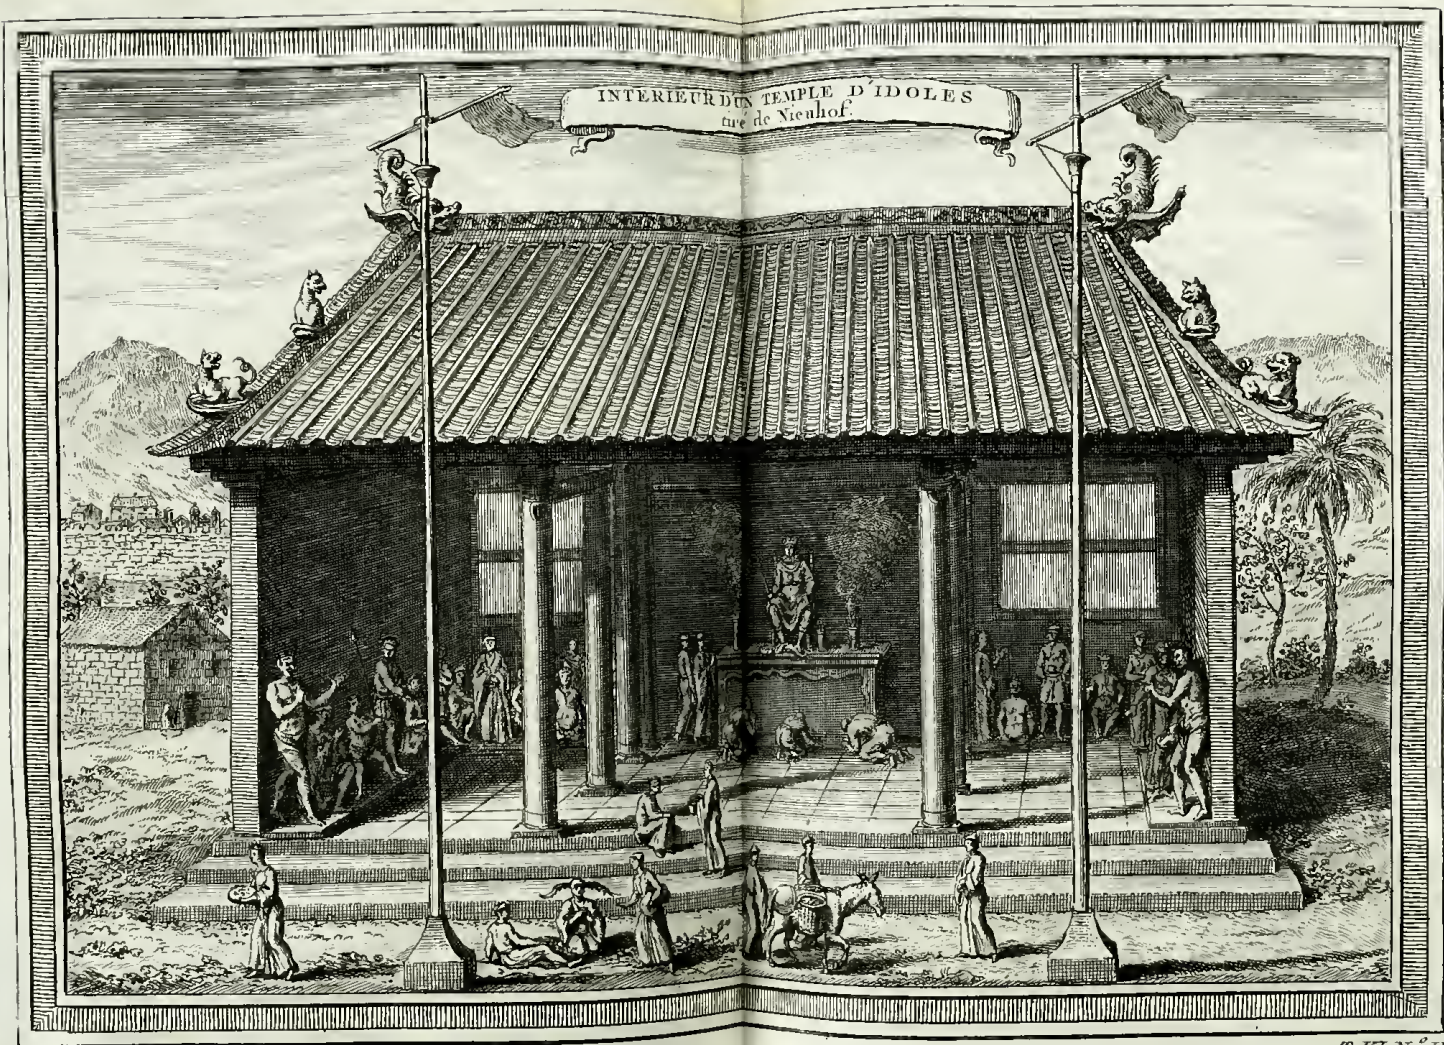 INTERIEUR D'UN TEMPLE D'IDOLES
tiré de Nieuhof.